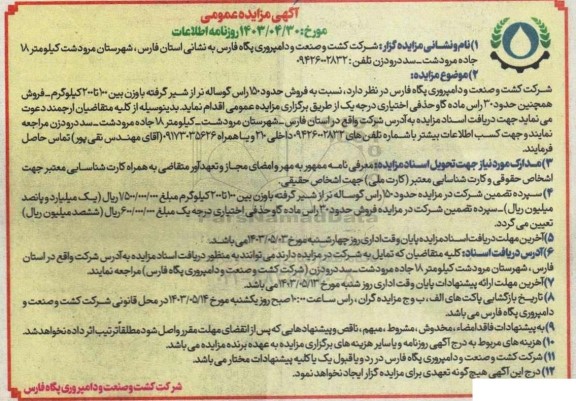 آگهی مزایده عمومی
مورخ: ۱۴۰۳/۰۴/۳۰ روزنامه اطلاعات
۱) نام و نشانی مزایده گزار: شرکت کشت و صنعت و دامپروری پگاه فارس به نشانی استان فارس، شهرستان مرودشت کیلومتر ۱۸
جاده مرودشت ــ سد درودزن تلفن: ۰۹۴۲۶۰۰۲۸۳۲
۲) موضوع مزایده:
شرکت کشت و صنعت و دامپروری پگاه فارس در نظر دارد، نسبت به فروش حدود ۱۵۰ راس گوساله نر از شیر گرفته با وزن بین ۱۰۰ تا ۲۰۰ کیلوگرم ــ فروش
همچنین حدود ۳۰ راس ماده گاو حذفی اختیاری درجه یک از طریق برگزاری مزایده عمومی اقدام نماید. بدینوسیله از کلیه متقاضیان ارجمند دعوت
می نماید جهت دریافت اسناد مزایده به آدرس شرکت واقع در استان فارس ــ شهرستان مرودشت ــ کیلومتر ۱۸ جاده مرودشت ــ سد درودزن مراجعه
نمایند و جهت کسب اطلاعات بیشتر با شماره تلفن های ۰۹۴۲۶۰۰۲۸۳۲ داخلی ۲۱۰ و یا همراه ۰۹۱۷۳۰۳۵۶۲۶ (آقای مهندس نقی پور) تماس حاصل
فرمایند.
۳) مدارک مورد نیاز جهت تحویل اسناد مزایده: معرفی نامه ممهور به مهر و امضای مجاز و تعهدآور متقاضی به همراه کارت شناسایی معتبر جهت
اشخاص حقوقی و کارت شناسایی معتبر (کارت ملی) جهت اشخاص حقیقی.
۴) سپرده تضمین شرکت در مزایده حدود ۱۵۰ راس گوساله نر از شیر گرفته با وزن بین ۱۰۰ تا ۲۰۰ کیلوگرم مبلغ ۷۵۰۰/۰۰۰/۰۰۰ ریال (یک میلیارد و پانصد
میلیون ریال) ــ سپرده تضمین شرکت در مزایده فروش حدود ۳۰ راس ماده گاو حذفی اختیاری درجه یک مبلغ ۶۰۰/۰۰۰/۰۰۰ ریال (ششصد میلیون ریال)
تعیین می گردد.
۵) آخرین مهلت دریافت اسناد مزایده پایان وقت اداری روز چهارشنبه مورخ ۱۴۰۳/۰۵/۰۳ می باشد.
۶) آدرس دریافت اسناد: کلیه متقاضیان که تمایل به شرکت در مزایده دارند می توانند به منظور دریافت اسناد مزایده به آدرس شرکت واقع در استان
فارس، شهرستان مرودشت کیلومتر ۱۸ جاده مرودشت ــ سد درودزن (شرکت کشت و صنعت و دامپروری پگاه فارس) مراجعه نمایند.
۷) آخرین مهلت ارائه پیشنهادات پایان وقت اداری روز شنبه مورخ ۱۴۰۳/۰۵/۱۳ می باشد.
۸) تاریخ بازگشایی پاکت های الف، ب و ج مزایده گران، راس ساعت ۱۰:۰۰ صبح روز یکشنبه مورخ ۱۴۰۳/۰۵/۱۴ در محل قانونی شرکت کشت و صنعت و
دامپروری پگاه فارس می باشد.
۹) به پیشنهادات فاقد امضاء، مخدوش، مشروط، مبهم، ناقص و پیشنهادهایی که پس از انقضای مهلت مقرر واصل شود مطلقاً ترتیب اثر داده نخواهد شد.
۱۰) هزینه های مربوط به درج آگهی روزنامه و یا سایر هزینه های برگزاری مزایده به عهده برنده مزایده می باشد.
۱۱) شرکت کشت و صنعت و دامپروری پگاه فارس در رد و یا قبول یک یا کلیه پیشنهادات مختار می باشد.
۱۲) درج این آگهی هیچ گونه تعهدی برای مزایده گزار ایجاد نخواهد نمود.
شرکت کشت و صنعت و دامپروری پگاه فارس